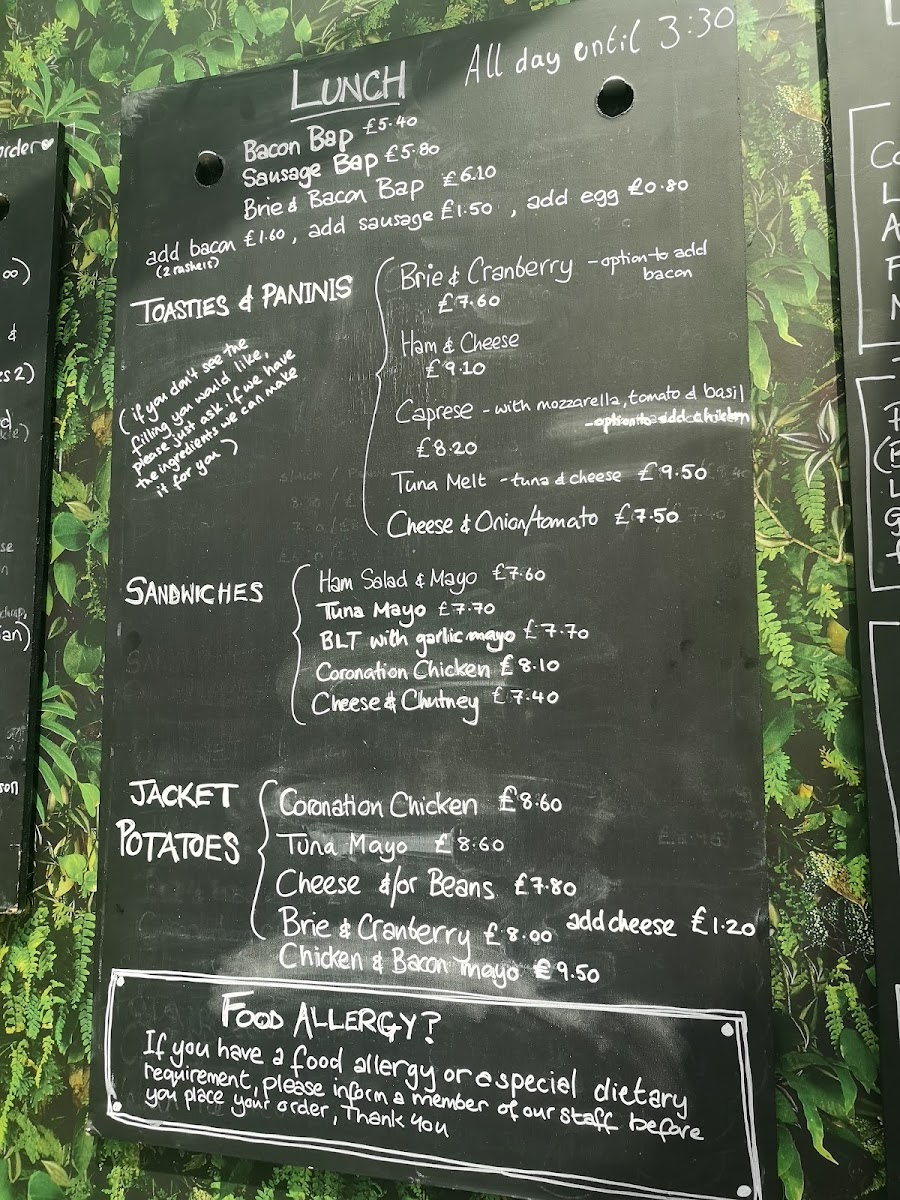 LUNCH All day until 3:30
Bacon Bap £5.40
Sausage Bap £5.80
Brie & Bacon Bap £6.10
add bacon £1.60, add sausage £1.50, add egg £0.80
(2 rashers)
TOASTIES & PANINIS
(if you don't see the
filling you would like,
please just ask. If we have
the ingredients we can make
it for you)
Brie & Cranberry - option to add
bacon
£7.60
Ham & Cheese
£9.10
Caprese - with mozzarella, tomato & basil
- option to add chicken
£8.20
Tuna Melt - tuna & cheese £9.50
Cheese & Onion/tomato £7.50
SANDWICHES
Ham Salad & Mayo £7.60
Tuna Mayo £7.70
BLT with garlic mayo £7.70
Coronation Chicken £8.10
Cheese & Chutney £7.40
JACKET
POTATOES
Coronation Chicken £8.60
Tuna Mayo £8.60
Cheese &/or Beans £7.80
Brie & Cranberry £8.00 add cheese £1.20
Chicken & Bacon mayo £9.50
FOOD ALLERGY?
If you have a food allergy or a special dietary
requirement, please inform a member of our staff before
you place your order, Thank you